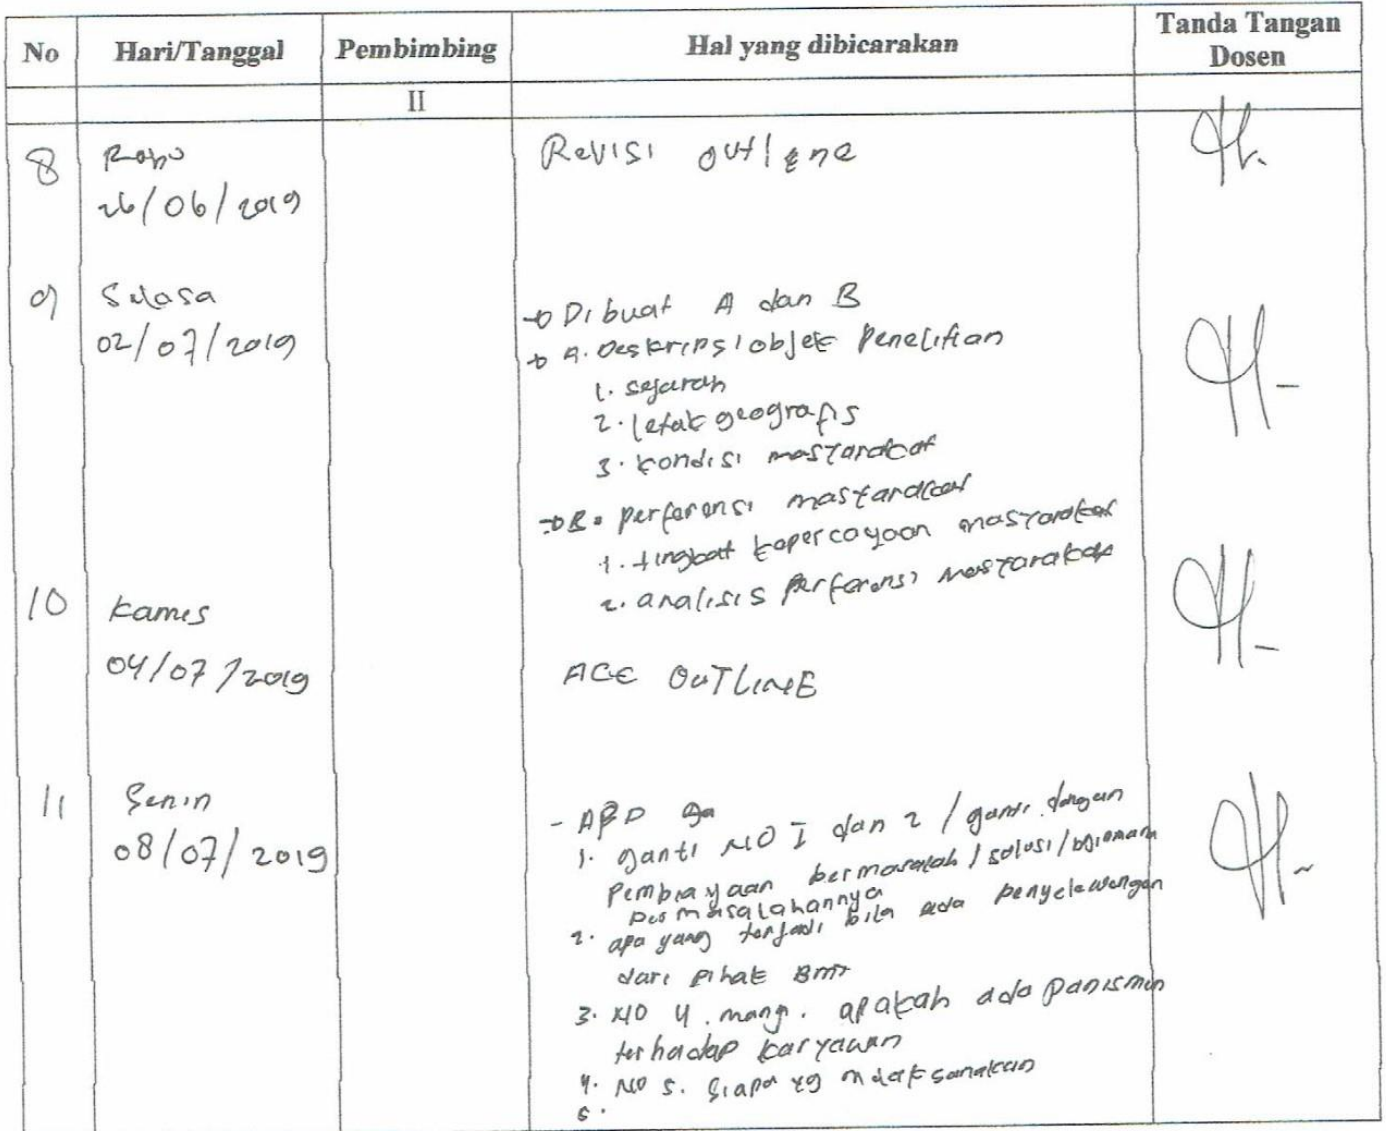 No Hari/Tanggal Pembimbing Hal yang dibicarakan Tanda Tangan Dosen
II
8 Rabu Revisi outline
26/06/2019
9 Selasa
02/07/2019
→ Dibuat A dan B
→ A. Deskripsi objek penelitian
1. sejarah
2. letak geografis
3. kondisi masyarakat
→ B. perferensi masyarakat
1. tingkat kepercayaan masyarakat
2. analisis perferensi masyarakat
10 Kamis
04/07/2019 ACC OUTLINE
11 Senin
08/07/2019
- APD
1. ganti NO I dan 2 / ganti dengan
pembiayaan bermasalah / solusi / bgiamana
permasalahannya
2. apa yang terjadi bila ada penyelewengan
dari pihak BMT
3. NO 4. mang. apakah ada panismen
terhadap karyawan
4. NO 5. siapa yg melaksanakan
5.